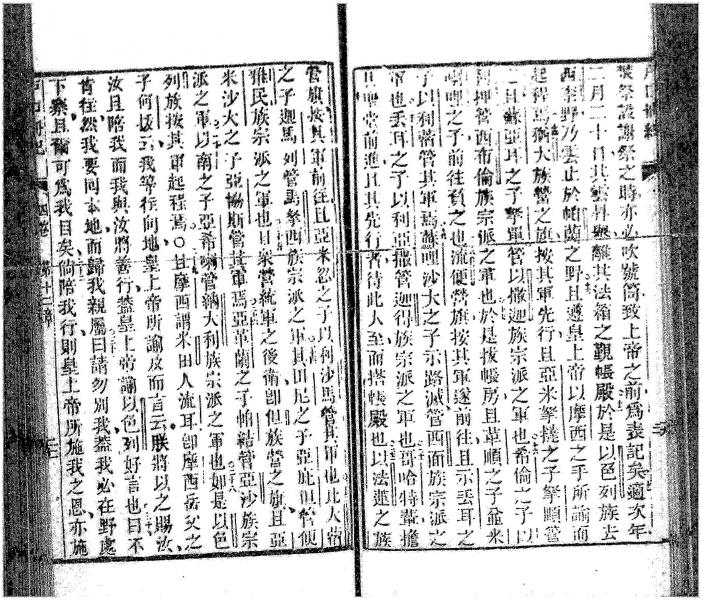 獎祭設謝祭之時亦必吹號筒致上帝之前爲表記矣適次年
二月二十日其雲昇與離其法箱之覲帳殿於是以色列族去
西季野乃雲止於帕蘭之野且遵皇上帝以摩西之手所諭而
起程焉猶大族營之旗按其軍先行且亞米拏撻之子拏順管
之且蘇亞耳之子拏單管以撒迦族宗派之軍也希倫之子以
押管西布倫族宗派之軍也於是拔帳房且革順之子並米
喇哩之子前往負之也流便營旗按其軍遂前往且示丟耳之
子以利蓿管其軍焉蘇哩沙大之子示路滅管西面族宗派之
軍也丟耳之子以利亞撒管迦得族宗派之軍也哥哈特輩擔
聖當前進且其先行者待此人至而搭帳殿也以法蓮之族
營旗按其軍前往且亞米忽之子以利沙馬管其軍也比大蓿
之子迦馬列管馬拏西族宗派之軍其田尼之子亞庇但管便
雅民族宗派之軍也且衆營統軍之後衛卽但族營之旗且亞
米沙大之子亞協斯管其軍焉亞革蘭之子帕結管亞沙族宗
派之軍以南之子亞希喇管納大利族宗派之軍也如是以色
列族按其軍起程焉〇且摩西謂米田人流耳卽摩西岳父之
子何拔云我等往向地皇上帝所諭及而言云朕將以之賜汝
汝且陪我而我與汝將善行蓋皇上帝諭以色列好言也曰不
肯往然我要回本地而歸我親屬曰請勿別我蓋我必在野處
下寨且爾可爲我目矣倘陪我行則皇上帝所施我之恩亦施
戶口冊紀 四卷 第十二章